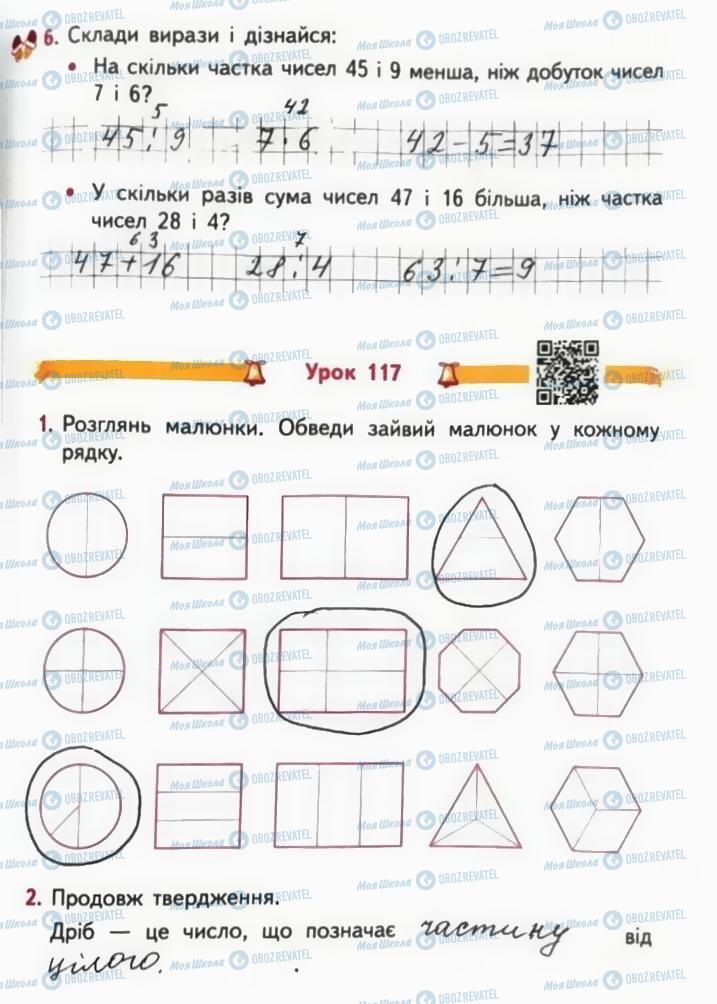 6. Склади вирази і дізнайся:
• На скільки частка чисел 45 і 9 менша, ніж добуток чисел
7 і 6?
5 42
45:9 7·6 42-5=37
• У скільки разів сума чисел 47 і 16 більша, ніж частка
чисел 28 і 4?
63 7
47+16 28:4 63:7=9
Урок 117
1. Розглянь малюнки. Обведи зайвий малюнок у кожному
рядку.
2. Продовж твердження.
Дріб — це число, що позначає частину від
цілого.
МояШкола OBOZREVATEL